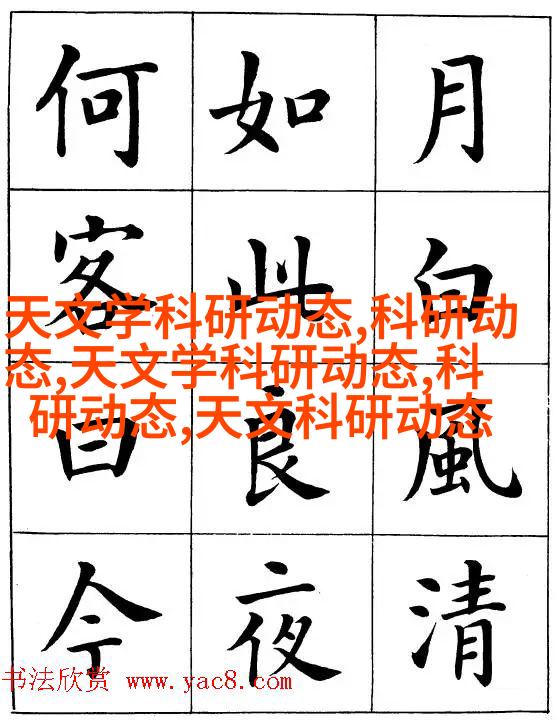 月白風清
如此良夜
何客曰今
天文学科研动态,科研动
态,天文学科研动态,科
研动态,天文科研动态
书法欣赏 www.yac8.com